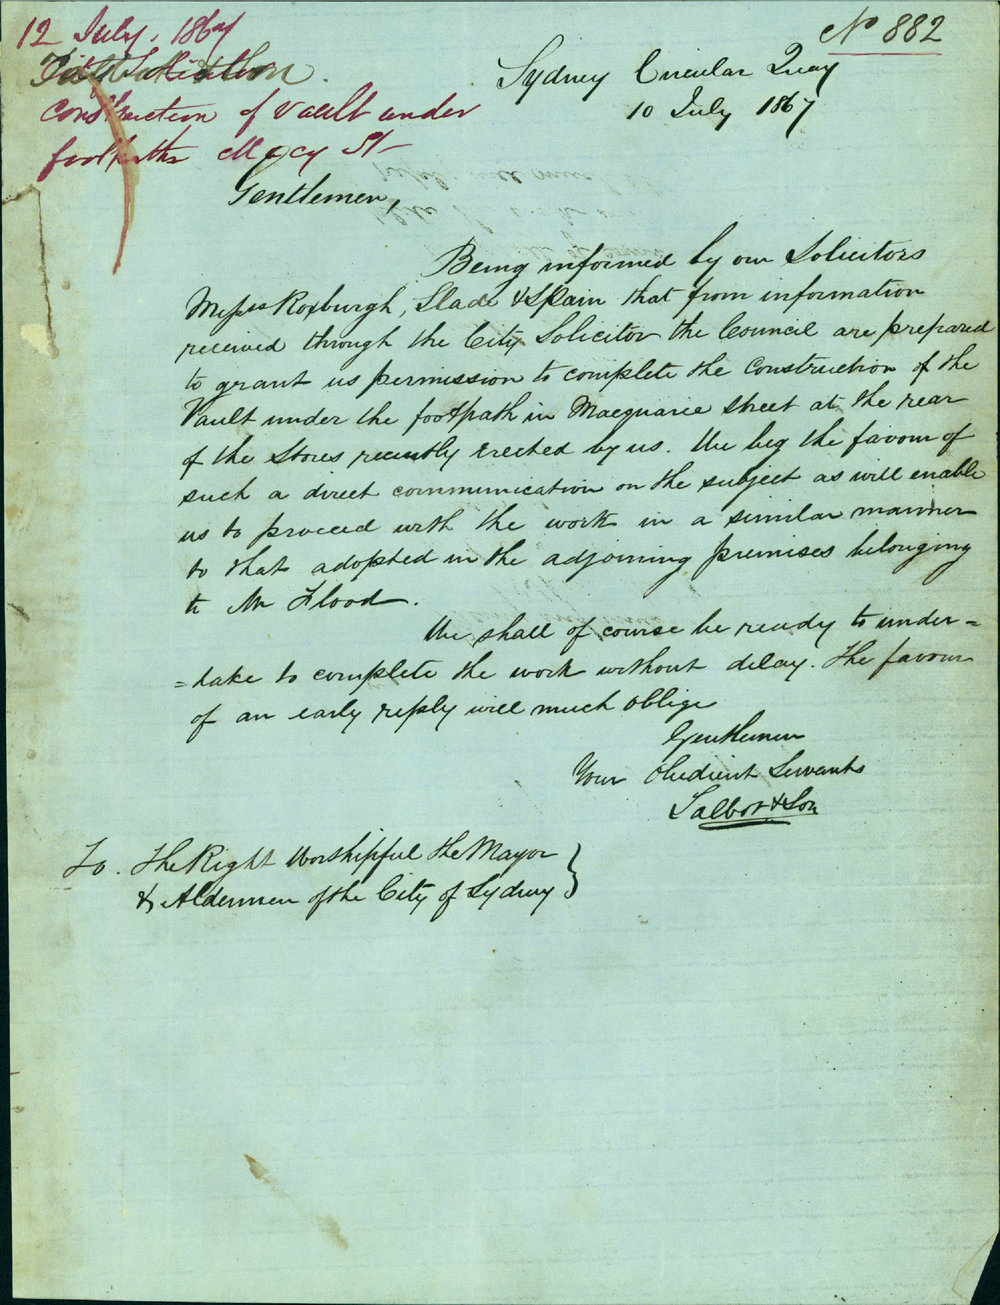 12 July, 1867
No 882
Talbot & Son.
Construction of Vault under
footpath Macq St
Sydney Circular Quay
10 July 1867
Gentlemen,
Being informed by our Solicitors
Messrs Roxburgh, Slade & Spain that from information
received through the City Solicitor the Council are prepared
to grant us permission to complete the Construction of the
Vault under the footpath in Macquarie Street at the rear
of the Stores recently erected by us. We beg the favour of
such a direct communication on the subject as will enable
us to proceed with the work in a similar manner
to that adopted in the adjoining premises belonging
to Mr Flood.
We shall of course be ready to under=
=take to complete the work without delay. The favour
of an early reply will much oblige
Gentlemen
Your Obedient Servants
Talbot & Son
To. The Right Worshipful the Mayor
& Aldermen of the City of Sydney